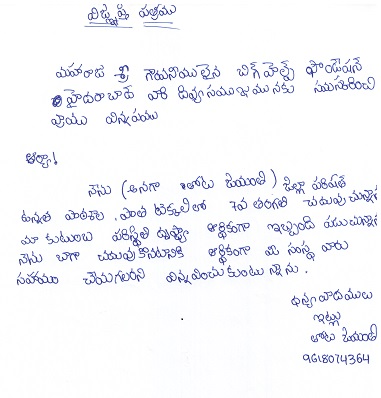 విజ్ఞప్తి పత్రము
మహారాజ శ్రీ గౌరవనీయులైన బిగ్ హెల్ప్ ఫౌండేషన్
హైదరాబాద్ వారి దివ్యసముఖమునకు నమస్కరించి
వ్రాయు విన్నపము
ఆర్యా!
నేను (అనగా లోటు జయంతి) జిల్లా పరిషత్
ఉన్నత పాఠశాల, పాత టెక్కలిలో 7వ తరగతి చదువుచున్నా
మా కుటుంబ పరిస్థితి దృష్ట్యా ఆర్థికంగా ఇబ్బంది పడుచున్నా
నేను బాగా చదువుకొనటానికి ఆర్థికంగా మీ సంస్థ వారు
సహాయం చేయగలరని విన్నవించుకుంటున్నాను.
ధన్యవాదములు
ఇట్లు
లోటు జయంతి
9618074364